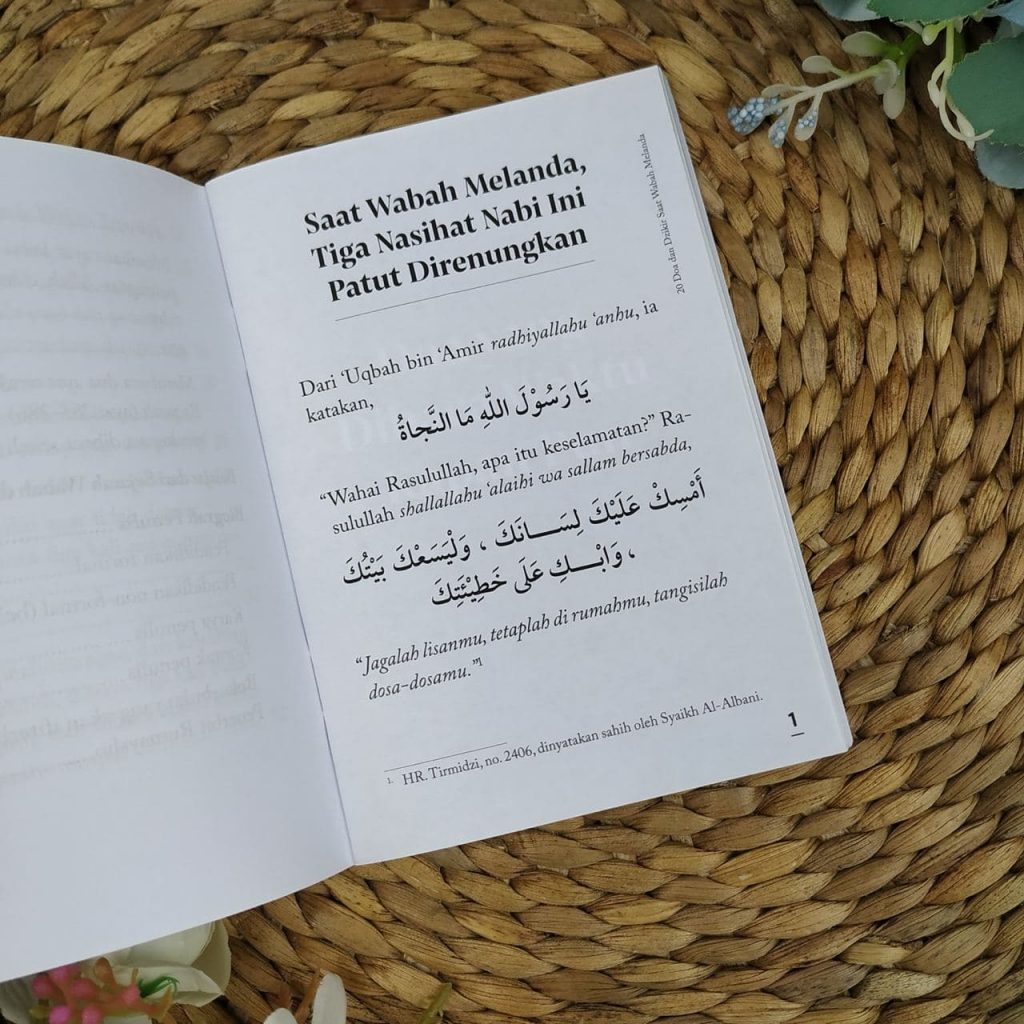 Saat Wabah Melanda,
Tiga Nasihat Nabi Ini
Patut Direnungkan
20 Doa dan Dzikir Saat Wabah Melanda
Dari ‘Uqbah bin ‘Amir radhiyallahu ‘anhu, ia
katakan,
يَا رَسُوْلَ اللهِ مَا النَّجاةُ
“Wahai Rasulullah, apa itu keselamatan?” Ra-
sulullah shallallahu ‘alaihi wa sallam bersabda,
أَمْسِكْ عَلَيْكَ لِسَـــانَكَ ، وَلْيَسَعْكَ بَيْتُكَ
، وَابْـــكِ عَلَى خَطِيْئَتِكَ
“Jagalah lisanmu, tetaplah di rumahmu, tangisilah
dosa-dosamu.”1
1. HR. Tirmidzi, no. 2406, dinyatakan sahih oleh Syaikh Al-Albani.
1